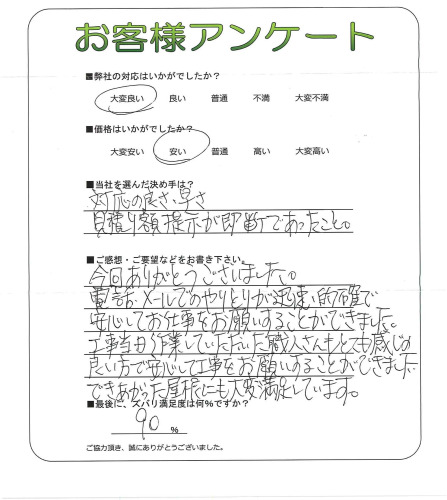 お客様アンケート
■弊社の対応はいかがでしたか？
大変良い 良い 普通 不満 大変不満
■価格はいかがでしたか？
大変安い 安い 普通 高い 大変高い
■当社を選んだ決め手は？
対応の良さ、早さ
見積り額提示が即断であったこと。
■ご感想・ご要望などをお書き下さい。
今回ありがとうございました。
電話お メールでのやりとりが迅速、的確で
安心してお仕事をお願いすることができました。
工事当日 作業していただいた職人さんもとても感じの
良い方で安心して工事をお願いすることができました
できあがった屋根にも大変満足しています。
■最後に、ズバリ満足度は何％ですか？
90 %
ご協力頂き、誠にありがとうございました。